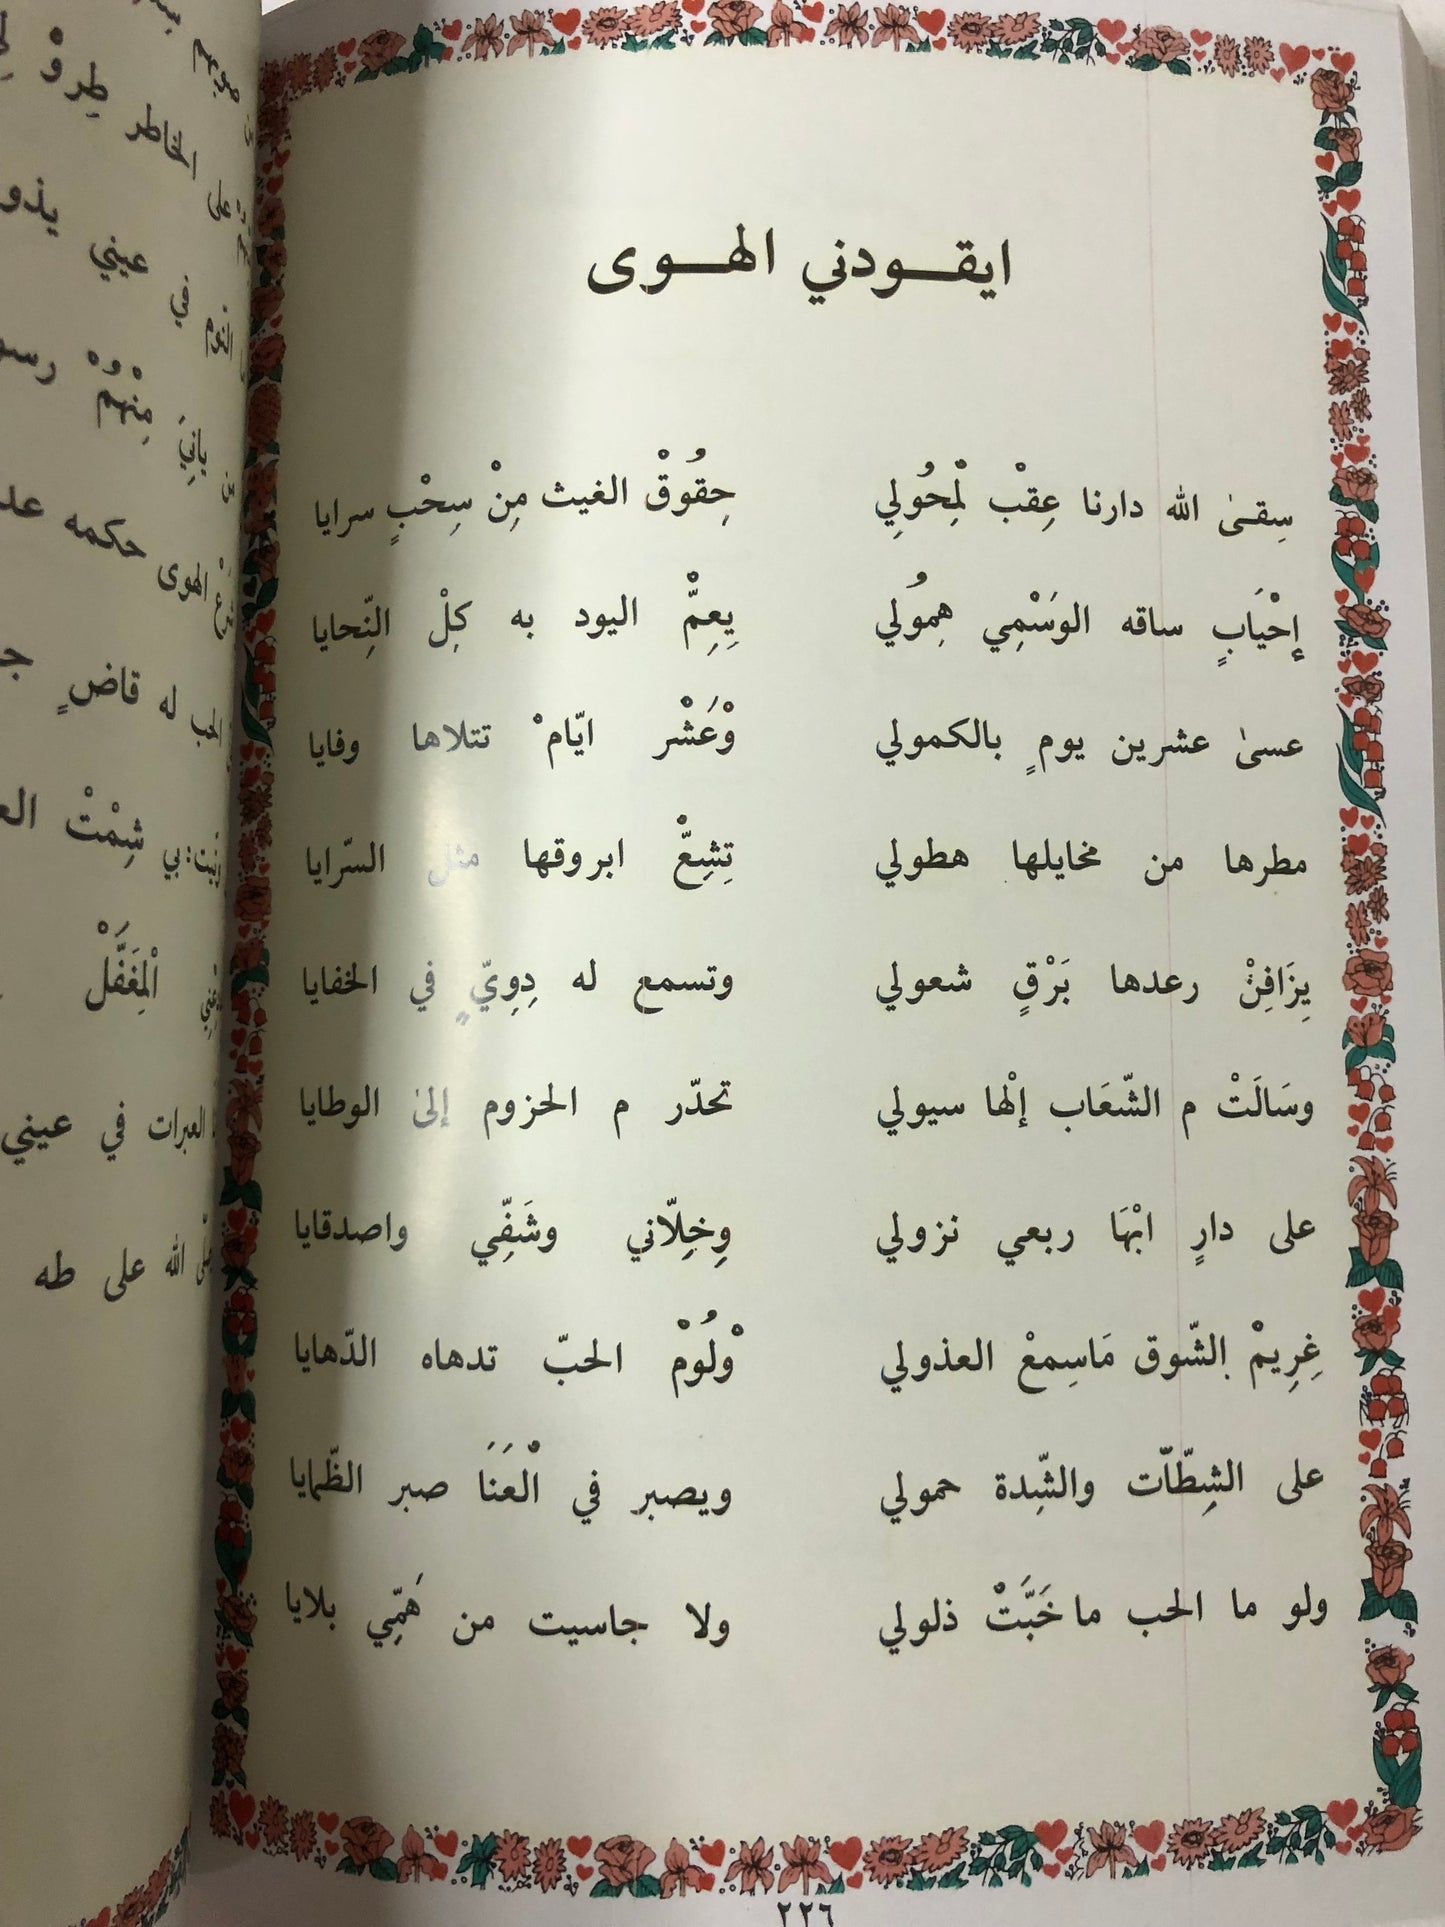 ايقـــودني الهـــوى
سِقـىٰ الله دارنا عِقبْ لمْحُولِي حِقُوقْ الغيث مِنْ سِحْبٍ سرايا
إحْيَابٍ ساقه الوَسْمِي هِمُولي يِعِمّْ اليود به كِلْ النِّحايا
عسىٰ عشرين يومٍ بالكمولي وْعَشْر ايّامْ تتلاها وفايا
مطرها من مخايلها هطولي تِشِعّْ ابروقها مثل السّرايا
يِزَافِنْ رعدها بَرْقٍ شعولي وتسمع له دِوِيٍّ في الخفايا
وسَالَتْ م الشّعَاب إلْها سيولي تحدّر م الحزوم إلىٰ الوطايا
على دارٍ ابْهَا ربعي نزولي وِخِلّاني وشَفِّي واصدقايا
غِرِيمْ الشّوق مَاسِمعْ العذولي وْلُومْ الحبّ تدهاه الدّهايا
على الشِطّات والشِّدة حمولي ويصبر في الْعَنَا صبر الظّمايا
ولو ما الحب ما خَبَّتْ ذلولي ولا جاسيت من هَمِّي بلايا
٢٢٦
على الخاطر طِروْ
في عيني يذو
يانِيَ مِنْهمْ
الهوى حكمه
الحب له قاضٍ
بي شِمْتْ
الْمِغَفَّلْ
العبرات في عيني
الله على طه